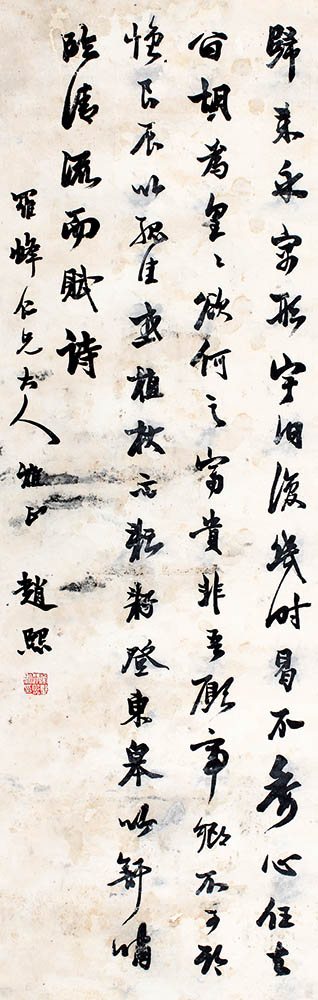 歸來寓形宇內復幾時曷不委心任去
留胡為皇〻欲何之富貴非吾願帝鄉不可期
懷良辰以孤往或植杖而耘耔登東皋以舒嘯
臨清流而賦詩
羅峰仁兄大人雅正 趙熙